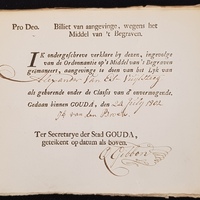 Pro Deo. Billiet van aangevinge, wegens het
Middel van 't Begraven.
IK ondergeschreve verklare by deezen, ingevolge
van de Ordonnantie op 't Middel van 't Begraven
geëmaneert, aangevinge te doen van het Lyk van
Alexander van
als gehorende onder de Classis van d' onvermogende.
Gedaan binnen GOUDA, den 24 July 1802
van den
Ter Secretarye der Stad GOUDA,
geteikent op datum als boven.